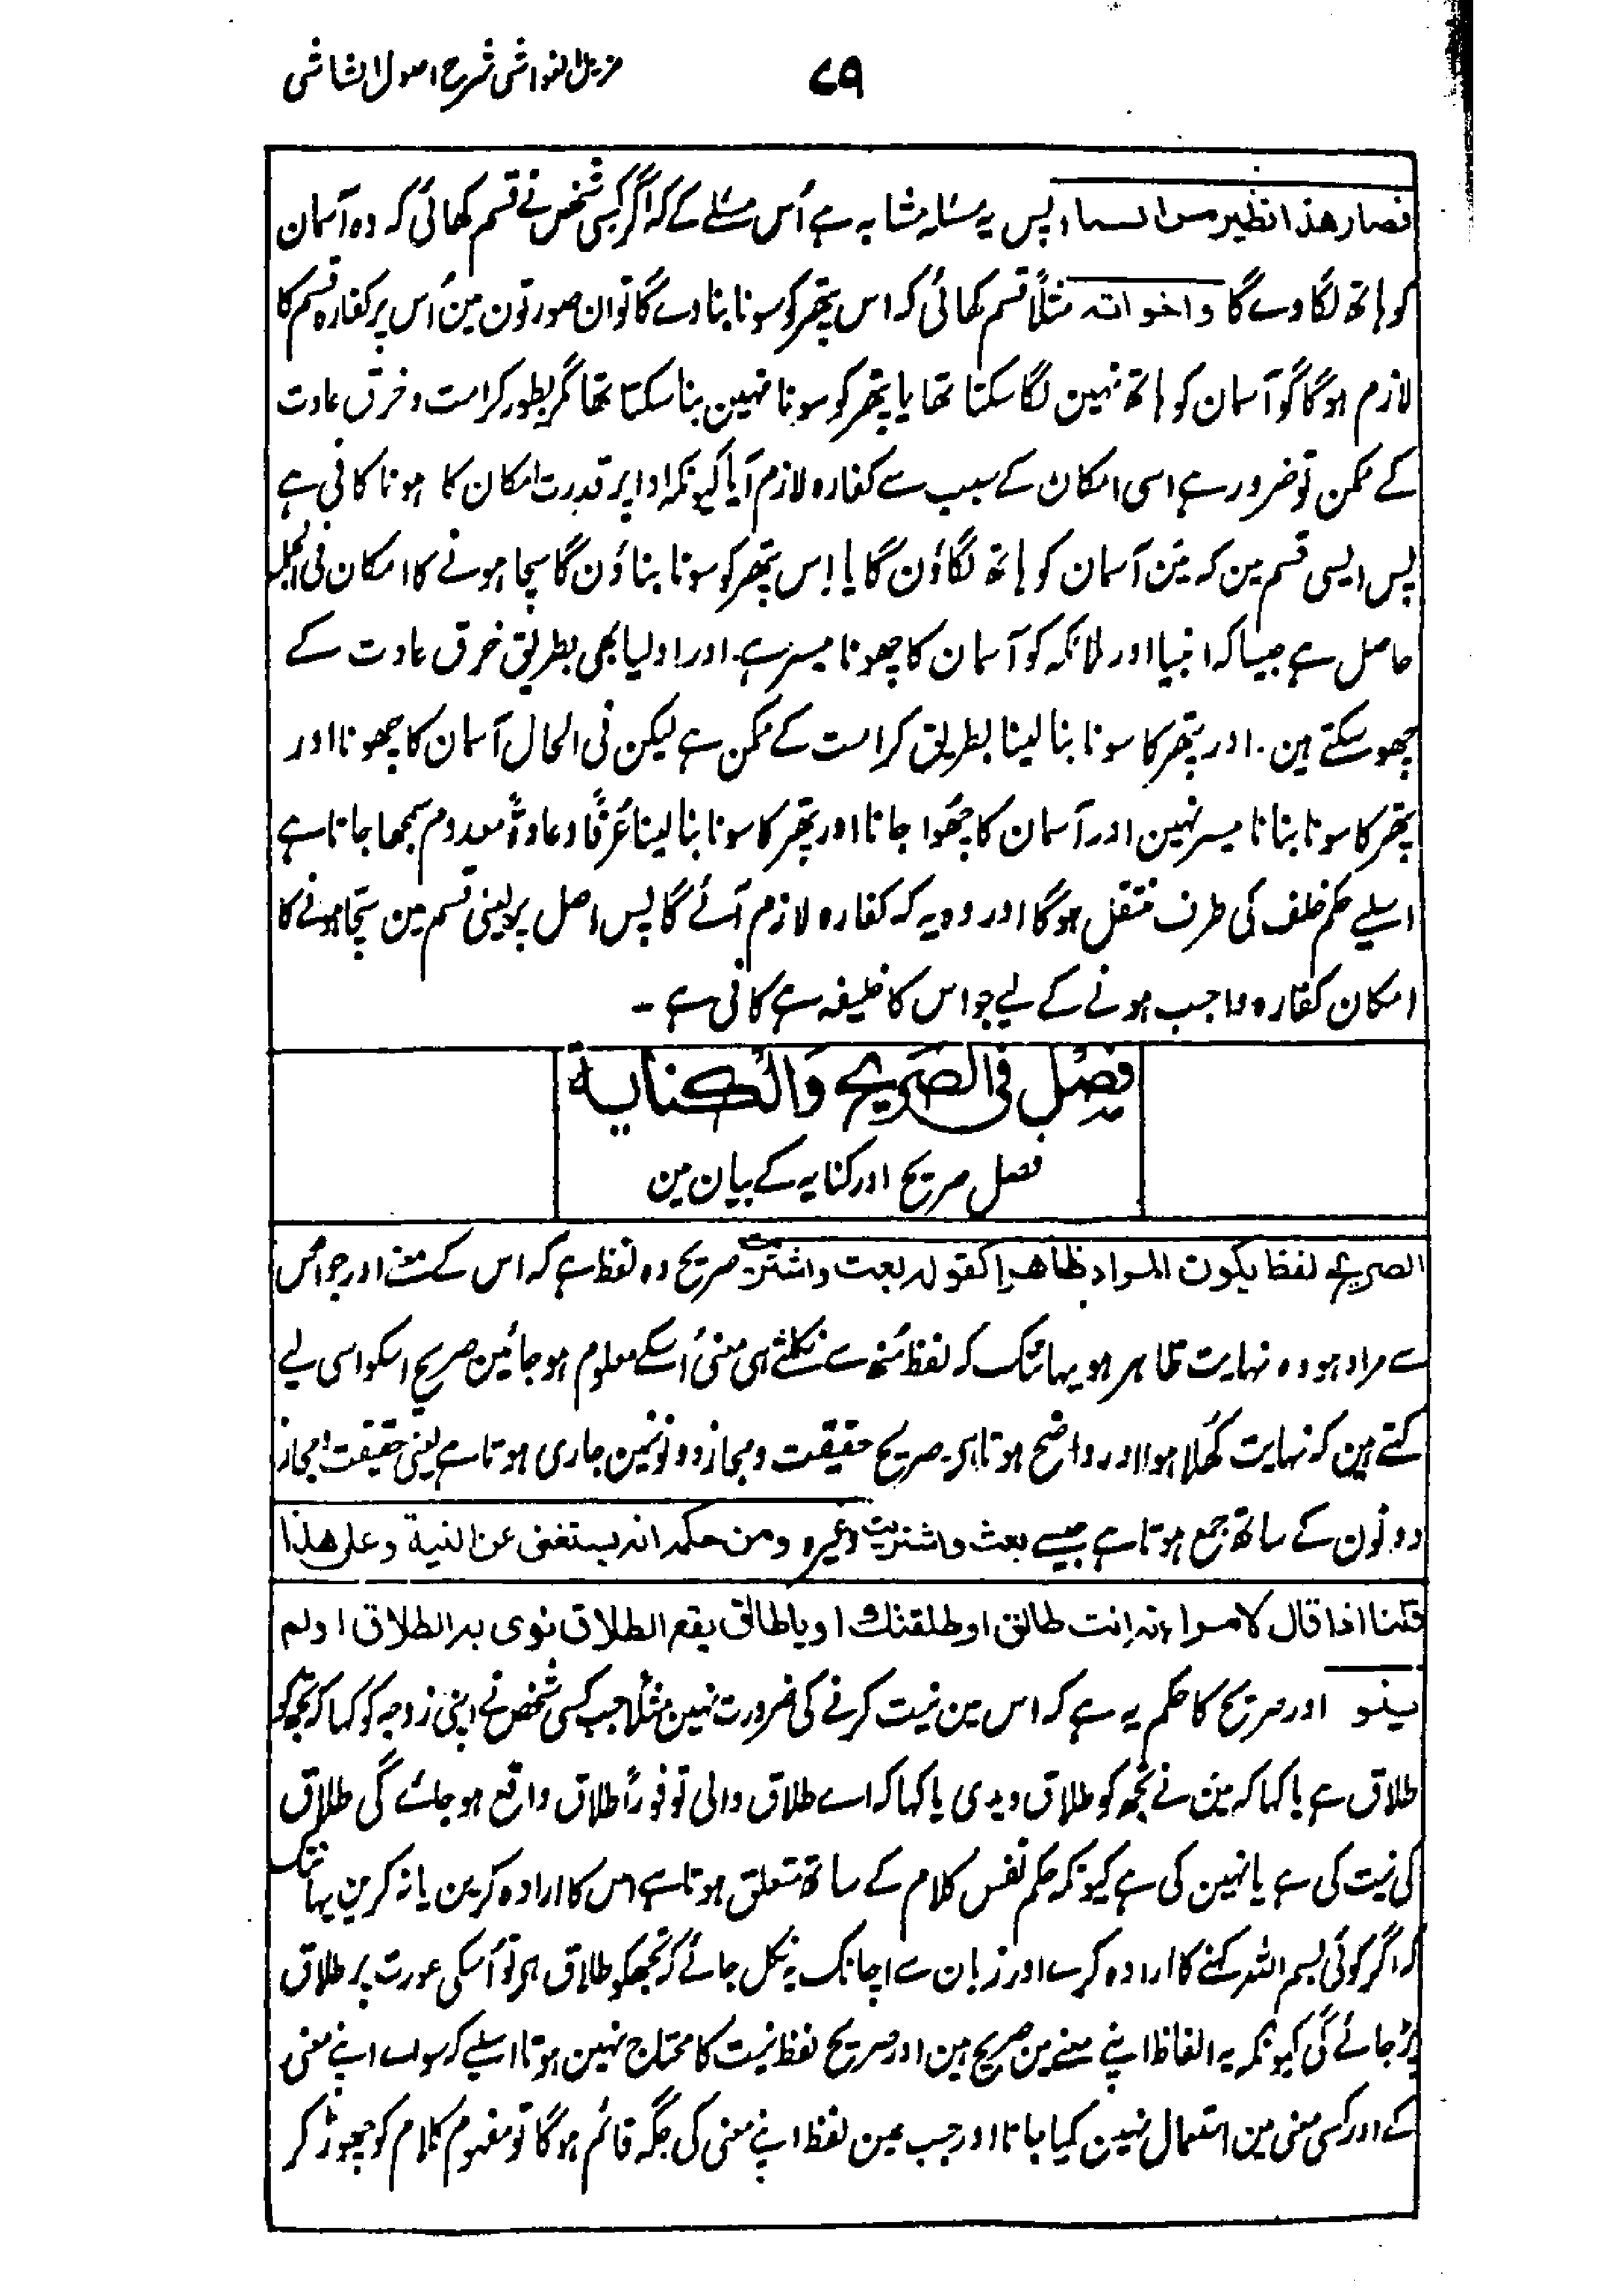 ۷۹ مزیل الغواشی شرح اصول الشاشی
فصار هذا نظیر مس السماء پس یہ مسئلہ مشابہ ہے اُس مسئلے کے کہ اگر کسی شخص نے قسم کھائی کہ وہ آسمان
کو ہاتھ لگا وے گا واخواته مثلاً قسم کھائی کہ اس پتھر کو سونا بنا دے گا تو ان صورتون مین اُس پر کفارہ قسم کا
لازم ہوگا گو آسمان کو ہاتھ نہین لگا سکتا تھا یا پتھر کو سونا نہین بنا سکتا تھا مگر بطور کرامت و خرق عادت
کے ممکن تو ضرور ہے اسی امکان کے سبب سے کفارہ لازم آیا کیونکہ ادا پر قدرت امکان کا ہونا کافی ہے
پس ایسی قسم مین کہ مین آسمان کو ہاتھ لگاؤن گا یا اِس پتھر کو سونا بناؤن گا سچا ہونے کا امکان فی الجملہ
حاصل ہے جیسا کہ انبیا اور ملائکہ کو آسمان کا چھونا میسر ہے۔ اور اولیا بھی بطریق خرق عادت کے
چھو سکتے ہین۔ اور پتھر کا سونا بنا لینا بطریق کرامت کے ممکن ہے لیکن فی الحال آسمان کا چھونا اور
پتھر کا سونا بنانا میسر نہین اور آسمان کا چھُوا جانا اور پتھر کا سونا بنا لینا عُرفًا و عادۃً معدوم سمجھا جاتا ہے
اسلیے حکم خلف کی طرف منتقل ہوگا اور وہ یہ کہ کفارہ لازم آئے گا پس اصل پر یعنی قسم مین سچا ہونے کا
امکان کفارہ واجب ہونے کے لیے جو اس کا خلیفہ ہے کافی ہے۔
فصل فی الصریح والکنایة
فصل صریح اور کنایہ کے بیان مین
الصریح لفظ یکون المراد به ظاهرا کقوله بعت واشتریت صریح وہ لفظ ہے کہ اس کے معنے اور جو اُس
سے مراد ہو وہ نہایت ظاہر ہو یہانتک کہ لفظ مُنھ سے نکلتے ہی معنی اُسکے معلوم ہو جائین صریح اسکو اسی لیے
کہتے ہین کہ نہایت کھُلا ہوا اور واضح ہوتا ہی۔ صریح حقیقت و مجاز دونونمین جاری ہوتا ہے یعنی حقیقت و مجاز
دونون کے ساتھ جمع ہوتا ہے جیسے بعت واشتریت وغیرہ ومن حکمه انه یستغنی عن النیة وعلی هذا
قلنا اذا قال لامرأته انت طالق او طلقتك او یا طالق یقع الطلاق نوی به الطلاق او لم
ینو اور صریح کا حکم یہ ہے کہ اس مین نیت کرنے کی ضرورت نہین مثلًا جب کسی شخص نے اپنی زوجہ کو کہا کہ تجھ کو
طلاق ہے یا کہا کہ مین نے تجھ کو طلاق دیدی یا کہا کہ اے طلاق والی تو فورًا طلاق واقع ہو جائے گی طلاق
کی نیت کی ہے یا نہین کی ہے کیونکہ حکم نفس کلام کے ساتھ متعلق ہوتا ہے اس کا ارادہ کرین یا نہ کرین یہانتک
کہ اگر کوئی بسم اللہ کہنے کا ارادہ کرے اور زبان سے اچانک یہ نکل جائے کہ تجھکو طلاق ہی تو اُسکی عورت پر طلاق
پڑ جائے گی کیونکہ یہ الفاظ اپنے معنے مین صریح ہین اور صریح لفظ نیت کا محتاج نہین ہوتا اسلیے کہ سواے اپنے معنی
کے اور کسی معنی مین استعمال نہین کیا جاتا اور جب عین لفظ اپنے معنی کی جگہ قائم ہوگا تو مفہوم کلام کو چھوڑ کر